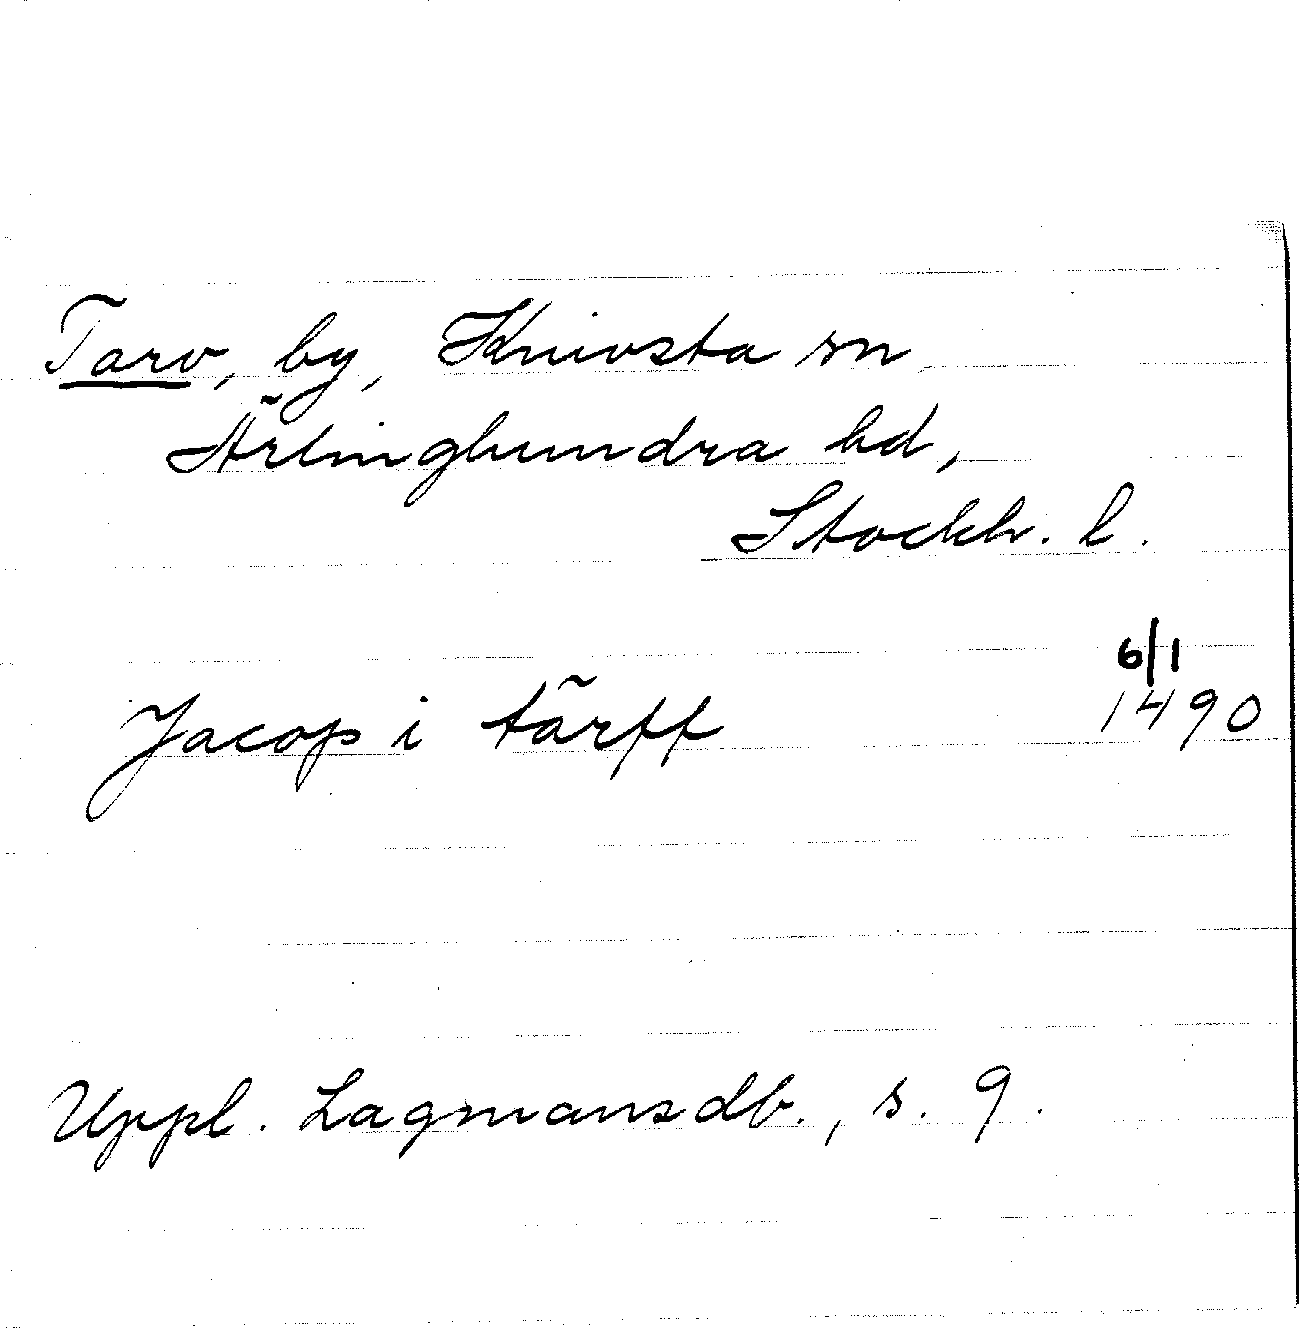 Tarv, by, Knivsta sn
Ärlinghundra hd,
Stockh. l.
6/1
Jacop i tärff 1490
Uppl. Lagmansdb., s. 9.